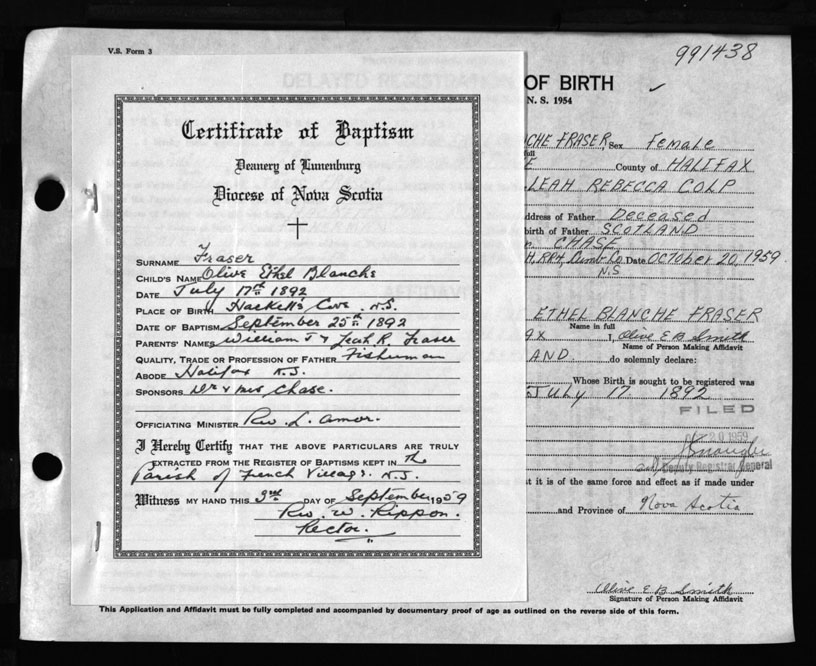 V.S. Form 3
991438
OF BIRTH
N. S. 1954
Certificate of Baptism
Deanery of Lunenburg
Diocese of Nova Scotia
SURNAME Fraser
CHILD'S NAME Olive Ethel Blanche
DATE July 17th 1892
PLACE OF BIRTH Hackett's Cove N.S.
DATE OF BAPTISM September 25th 1892
PARENTS' NAMES William J & Leah R. Fraser
QUALITY, TRADE OR PROFESSION OF FATHER Fisherman
ABODE Halifax N.S.
SPONSORS Dr & Mrs Chase.
OFFICIATING MINISTER Rev. L. Amor.
I Hereby Certify THAT THE ABOVE PARTICULARS ARE TRULY
EXTRACTED FROM THE REGISTER OF BAPTISMS KEPT IN The
Parish of French Village. N.S.
Witness MY HAND THIS 3rd DAY OF September 1959
Rev. W. Rippon.
Rector.
CHE FRASER, Sex Female
full
E County of HALIFAX
LEAH REBECCA COLP
ddress of Father Deceased
birth of Father SCOTLAND
CHASE
Date OCTOBER 20, 1959.
N.S
ETHEL BLANCHE FRASER
Name in full
I, Olive E B Smith
Name of Person Making Affidavit
AND do solemnly declare:
Whose Birth is sought to be registered was
July 17 1892
FILED
20 1959
Deputy Registrar General
t it is of the same force and effect as if made under
and Province of Nova Scotia
Olive E B Smith
Signature of Person Making Affidavit
This Application and Affidavit must be fully completed and accompanied by documentary proof of age as outlined on the reverse side of this form.